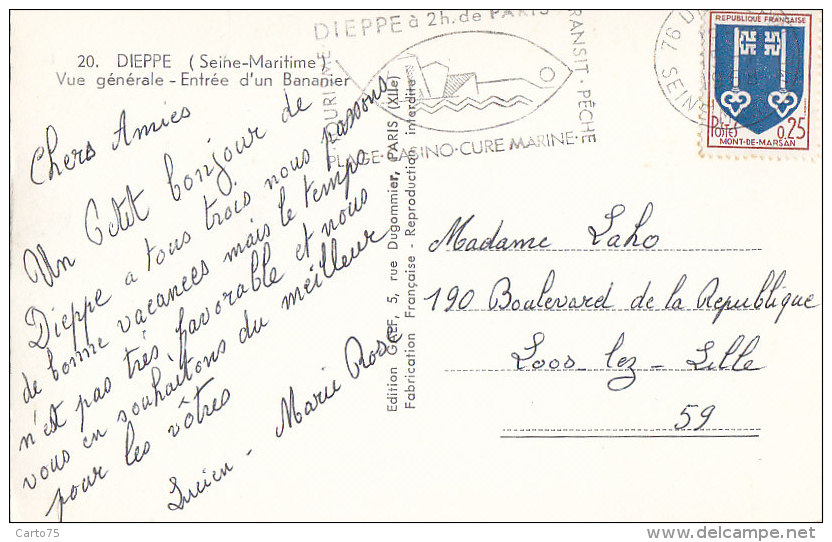 20. DIEPPE (Seine-Maritime)
Vue générale - Entrée d'un Bananier
DIEPPE à 2h. de PARIS
TRANSIT - PÊCHE
PLAGE - CASINO - CURE MARINE -
76 DI
SEINE
REPUBLIQUE FRANÇAISE
Postes
0,25
MONT-DE-MARSAN
Chers Amies
Un Petit bonjour de
Dieppe a tous trois nous passons
de bonne vacances mais le temps
n'est pas très favorable et nous
vous en souhaitons du meilleur
pour les vôtres
Lucien - Marie Rose
Edition GREF, 5, rue Dugommier, PARIS (XIIe)
Fabrication Française - Reproduction interdite
Madame Laho
190 Boulevard de la Republique
Loos - lez - Lille
59
Carto75
delcampe.net